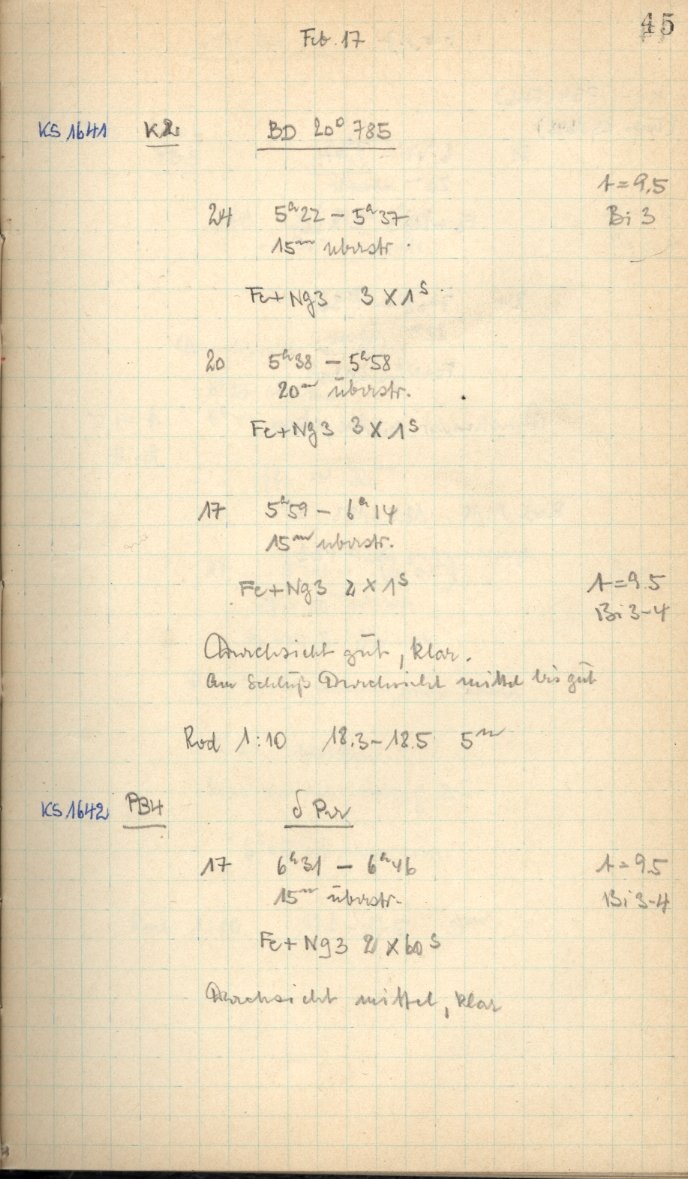 45
Feb. 17
KS 1641 K2 BD 20° 785
A = 9,5
24 5ʰ22 – 5ʰ37 Bi 3
15ᵐ überstr.
Fe+Ng3 3 × 1ˢ
20 5ʰ38 – 5ʰ58
20ᵐ überstr.
Fe+Ng3 3 × 1ˢ
17 5ʰ59 – 6ʰ14
15ᵐ überstr.
Fe+Ng3 2 × 1ˢ A = 9.5
Bi 3-4
Durchsicht gut, klar.
Am Schluß Durchsicht mittel bis gut
Rod 1:10 18.3 – 18.5 5ᵐ
KS 1642 PB4 δ Per
17 6ʰ31 – 6ʰ46 A = 9.5
15ᵐ überstr. Bi 3-4
Fe+Ng3 2 × 60ˢ
Durchsicht mittel, klar